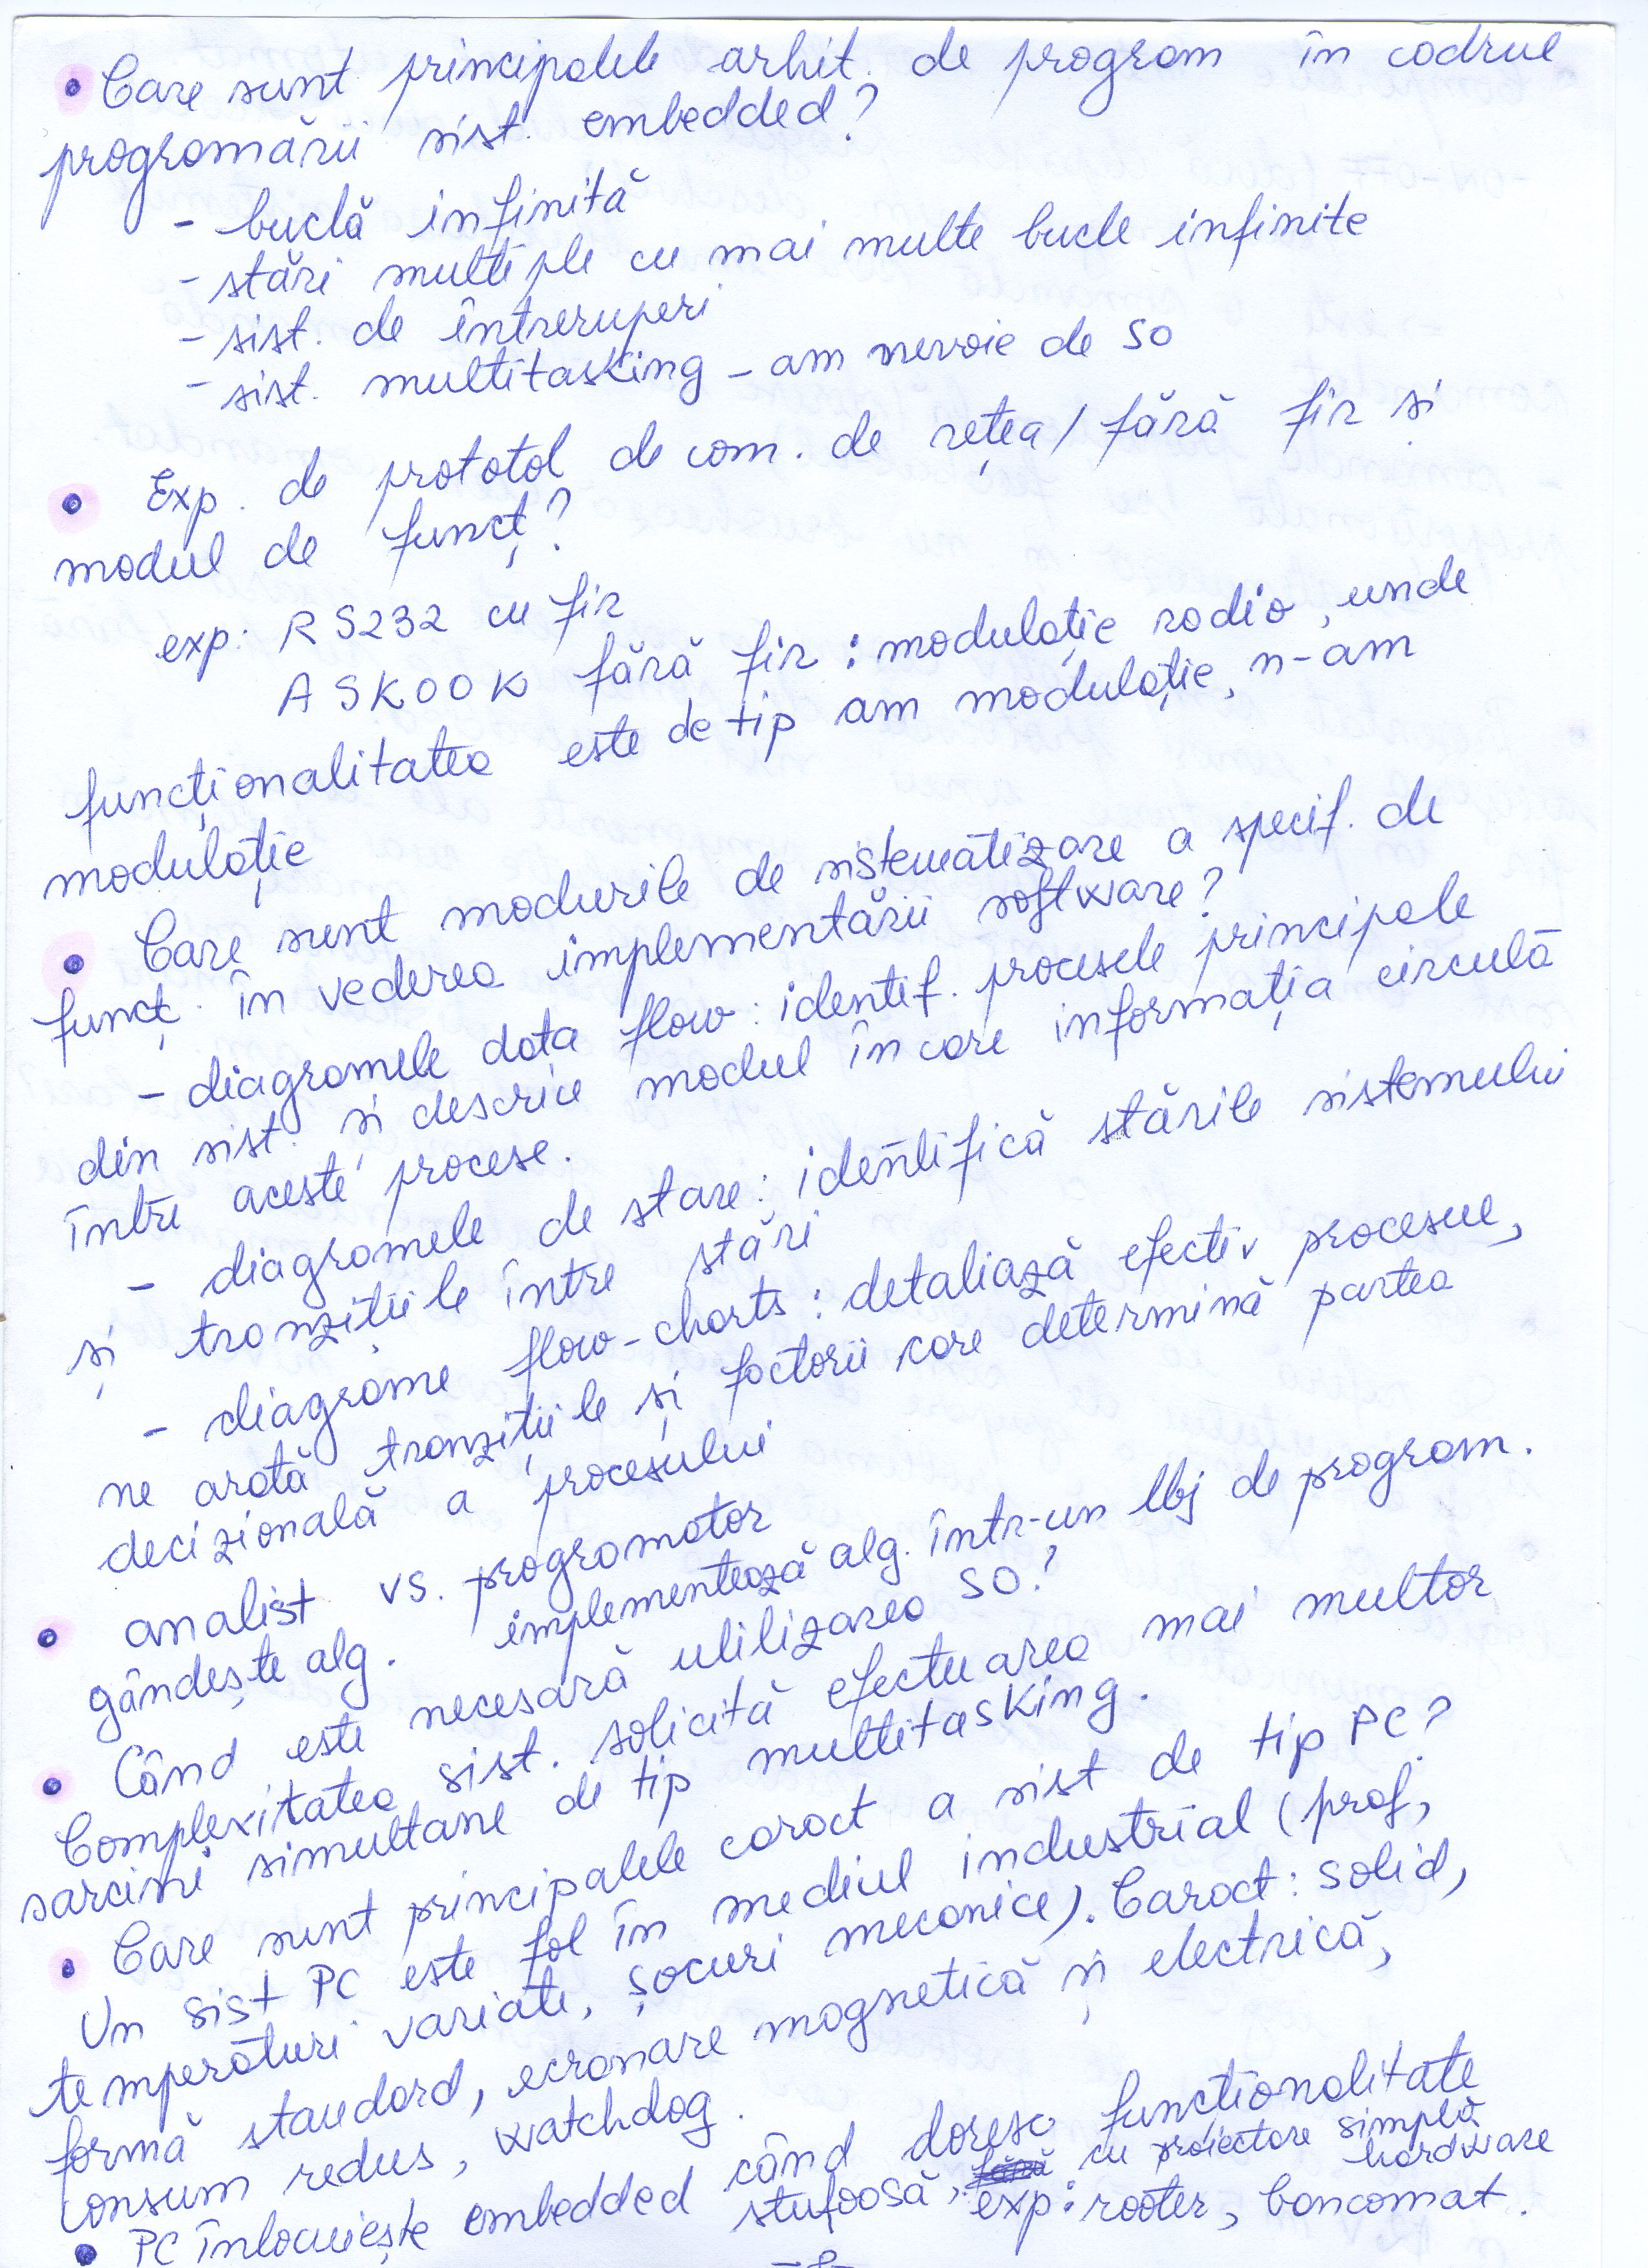 • Care sunt principalele arhit. de program în cadrul
programării sist. embedded?
- buclă infinită
- stări multiple cu mai multe bucle infinite
- sist. de întreruperi
- sist. multitasking - am nevoie de SO
• Exp. de prototol de com. de rețea / fără fir și
modul de funcț?
exp: RS232 cu fir
ASKOOK fără fir : modulație radio, unde
funcționalitatea este de tip am modulație, n-am
modulație
• Care sunt modurile de sistematizare a specif. de
funcț. în vederea implementării software?
- diagramele data flow : identif. procesele principale
din sist. și descrie modul în care informația circulă
între aceste procese.
- diagramele de stare : identifică stările sistemului
și tranzițiile între stări
- diagrame flow-charts : detaliază efectiv procesue,
ne arată tranzițiile și factorii care determină partea
decizională a procesului
• analist vs. programator
gândește alg. implementează alg. într-un lbj de program.
• Când este necesară utilizarea SO?
Complexitatea sist. solicită efectuarea mai multor
sarcini simultane de tip multitasking.
• Care sunt principalele caract a sist de tip PC?
Un sist PC este fol în mediul industrial (praf,
temperaturi variate, șocuri mecanice). Caract : solid,
formă standard, ecranare magnetică și electrică,
consum redus, watchdog.
• PC înlocuiește embedded când doresc funcționalitate
stufoasă, cu proiectare simplă
hardware
exp: rooter, bancomat.